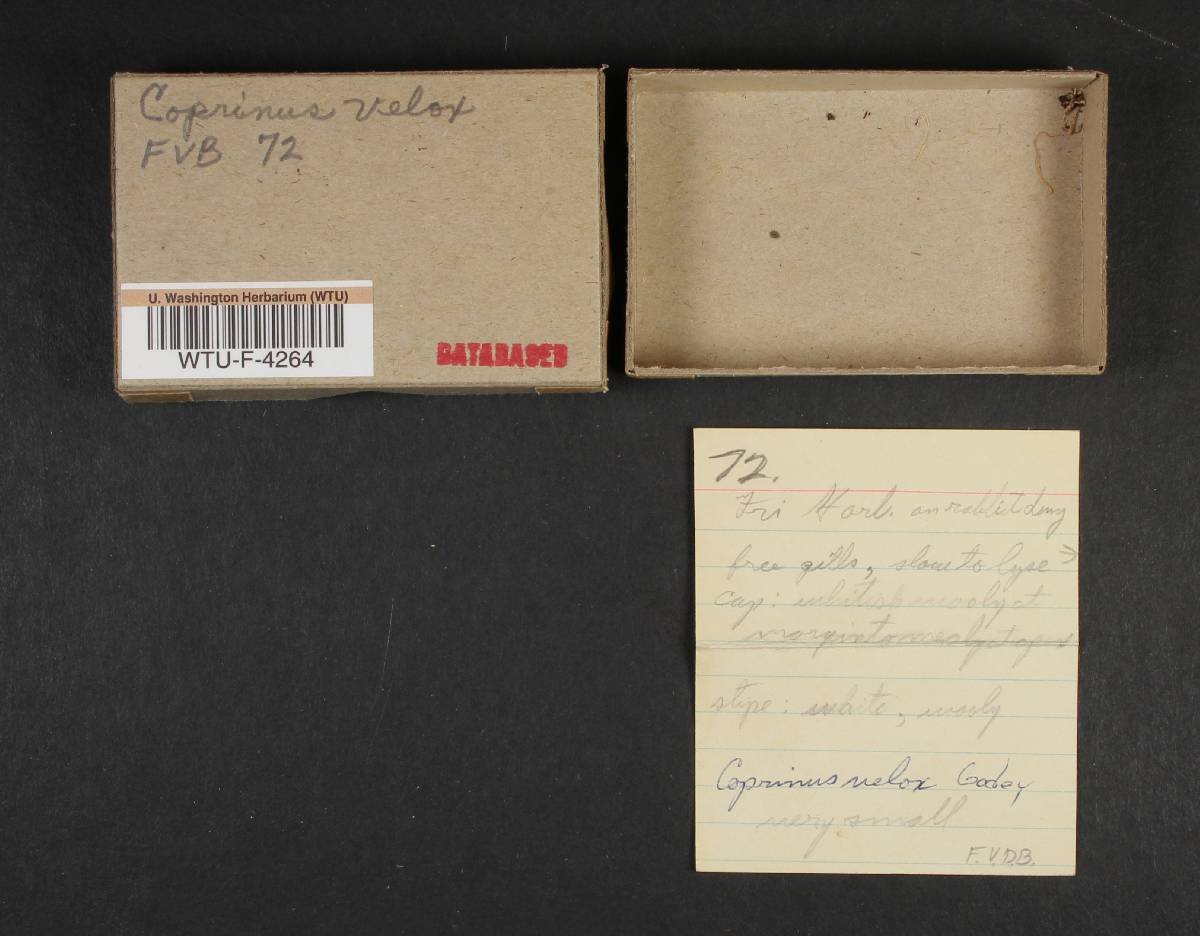 Coprinus velox
FVB 72
U. Washington Herbarium (WTU)
WTU-F-4264
DATABASED
72.
Fri Harb. on rabbit dung
free gills, slow to lyse →
cap: whitish wooly at
margin to mealy at apex
stipe: white, wooly
Coprinus velox Godey
very small
F.V.D.B.